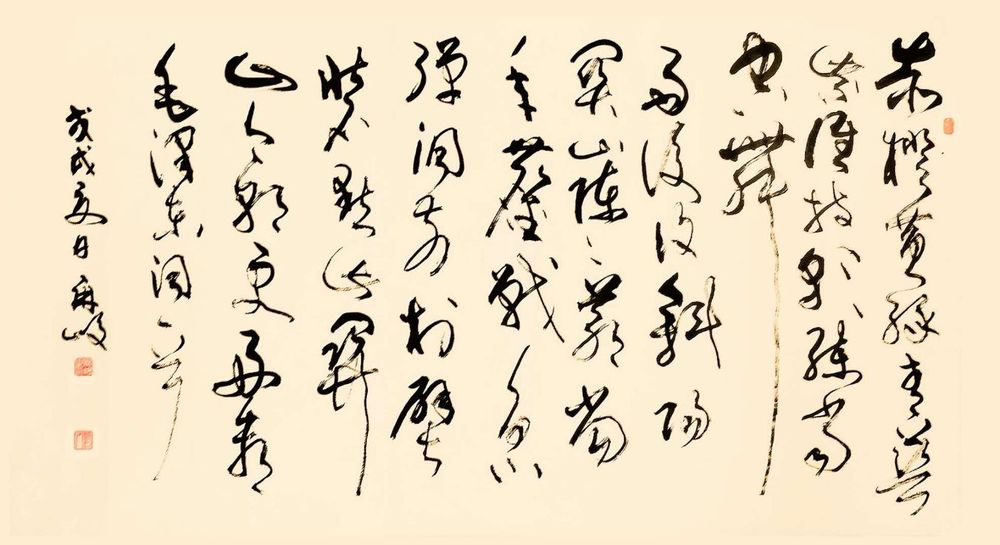 赤橙黄绿青蓝
紫谁持彩练当
空舞
雨後复斜阳
关山阵阵苍当
年鏖战急
弹洞前村壁
装点此关
山今朝更好看
毛泽东词一首
戊戌夏日